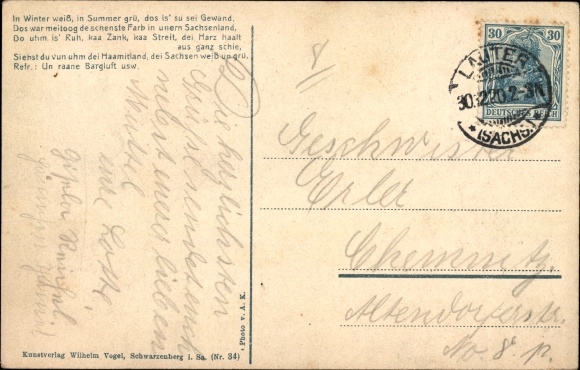 In Winter weiß, in Summer grü, dos is' su sei Gewand,
Dos war meitoog de schenste Farb in unern Sachsenland,
Do uhm is' Ruh, kaa Zank, kaa Streit, dei Harz haalt
aus ganz schie,
Siehst du vun uhm dei Haamitland, dei Sachsen weiß un grü,
Refr.: Un raane Bargluft usw.
Die herzlichsten
Grüsse sendet euch
nebst
lieben
Mutter
und Lotte
Kunstverlag Wilhelm Vogel, Schwarzenberg i. Sa. (Nr. 34)
Photo v. A. K.
30 30
DEUTSCHES REICH
LAUTER
30.12.20. 2-3N
* (SACHS.)
Geschwister
Erler
Chemnitz
Altendorferstr.
No. 8 p.